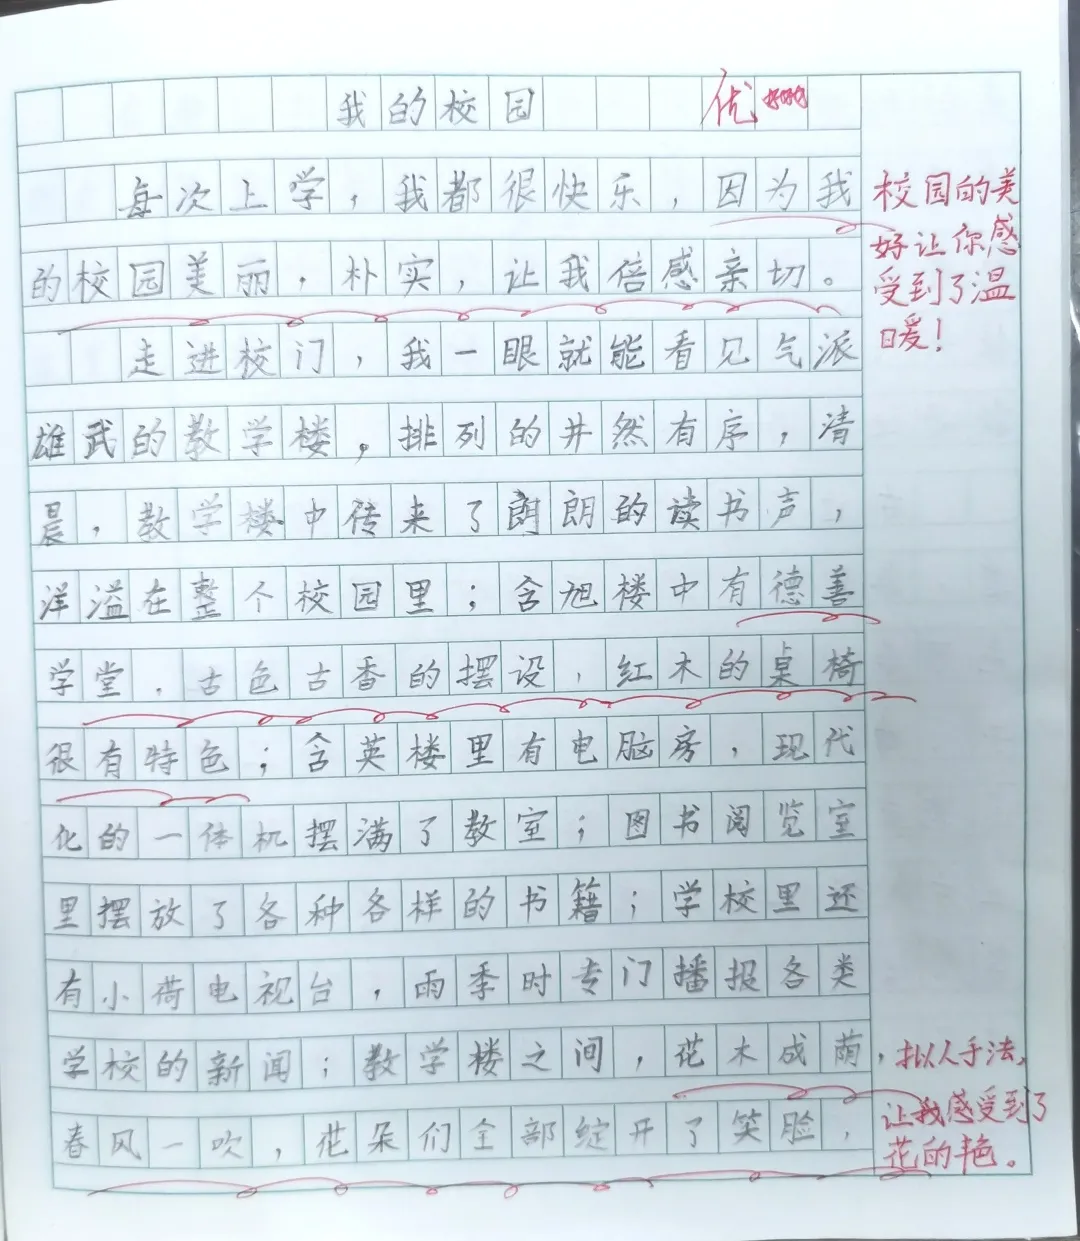 我的校园
优
每次上学，我都很快乐，因为我
的校园美丽，朴实，让我倍感亲切。
走进校门，我一眼就能看见气派
雄武的教学楼，排列的井然有序，清
晨，教学楼中传来了朗朗的读书声，
洋溢在整个校园里；含旭楼中有德善
学堂，古色古香的摆设，红木的桌椅
很有特色；含英楼里有电脑房，现代
化的一体机摆满了教室；图书阅览室
里摆放了各种各样的书籍；学校里还
有小荷电视台，雨季时专门播报各类
学校的新闻；教学楼之间，花木成荫，
春风一吹，花朵们全部绽开了笑脸，
校园的美
好让你感
受到了温
暖！
拟人手法，
让我感受到了
花的艳。